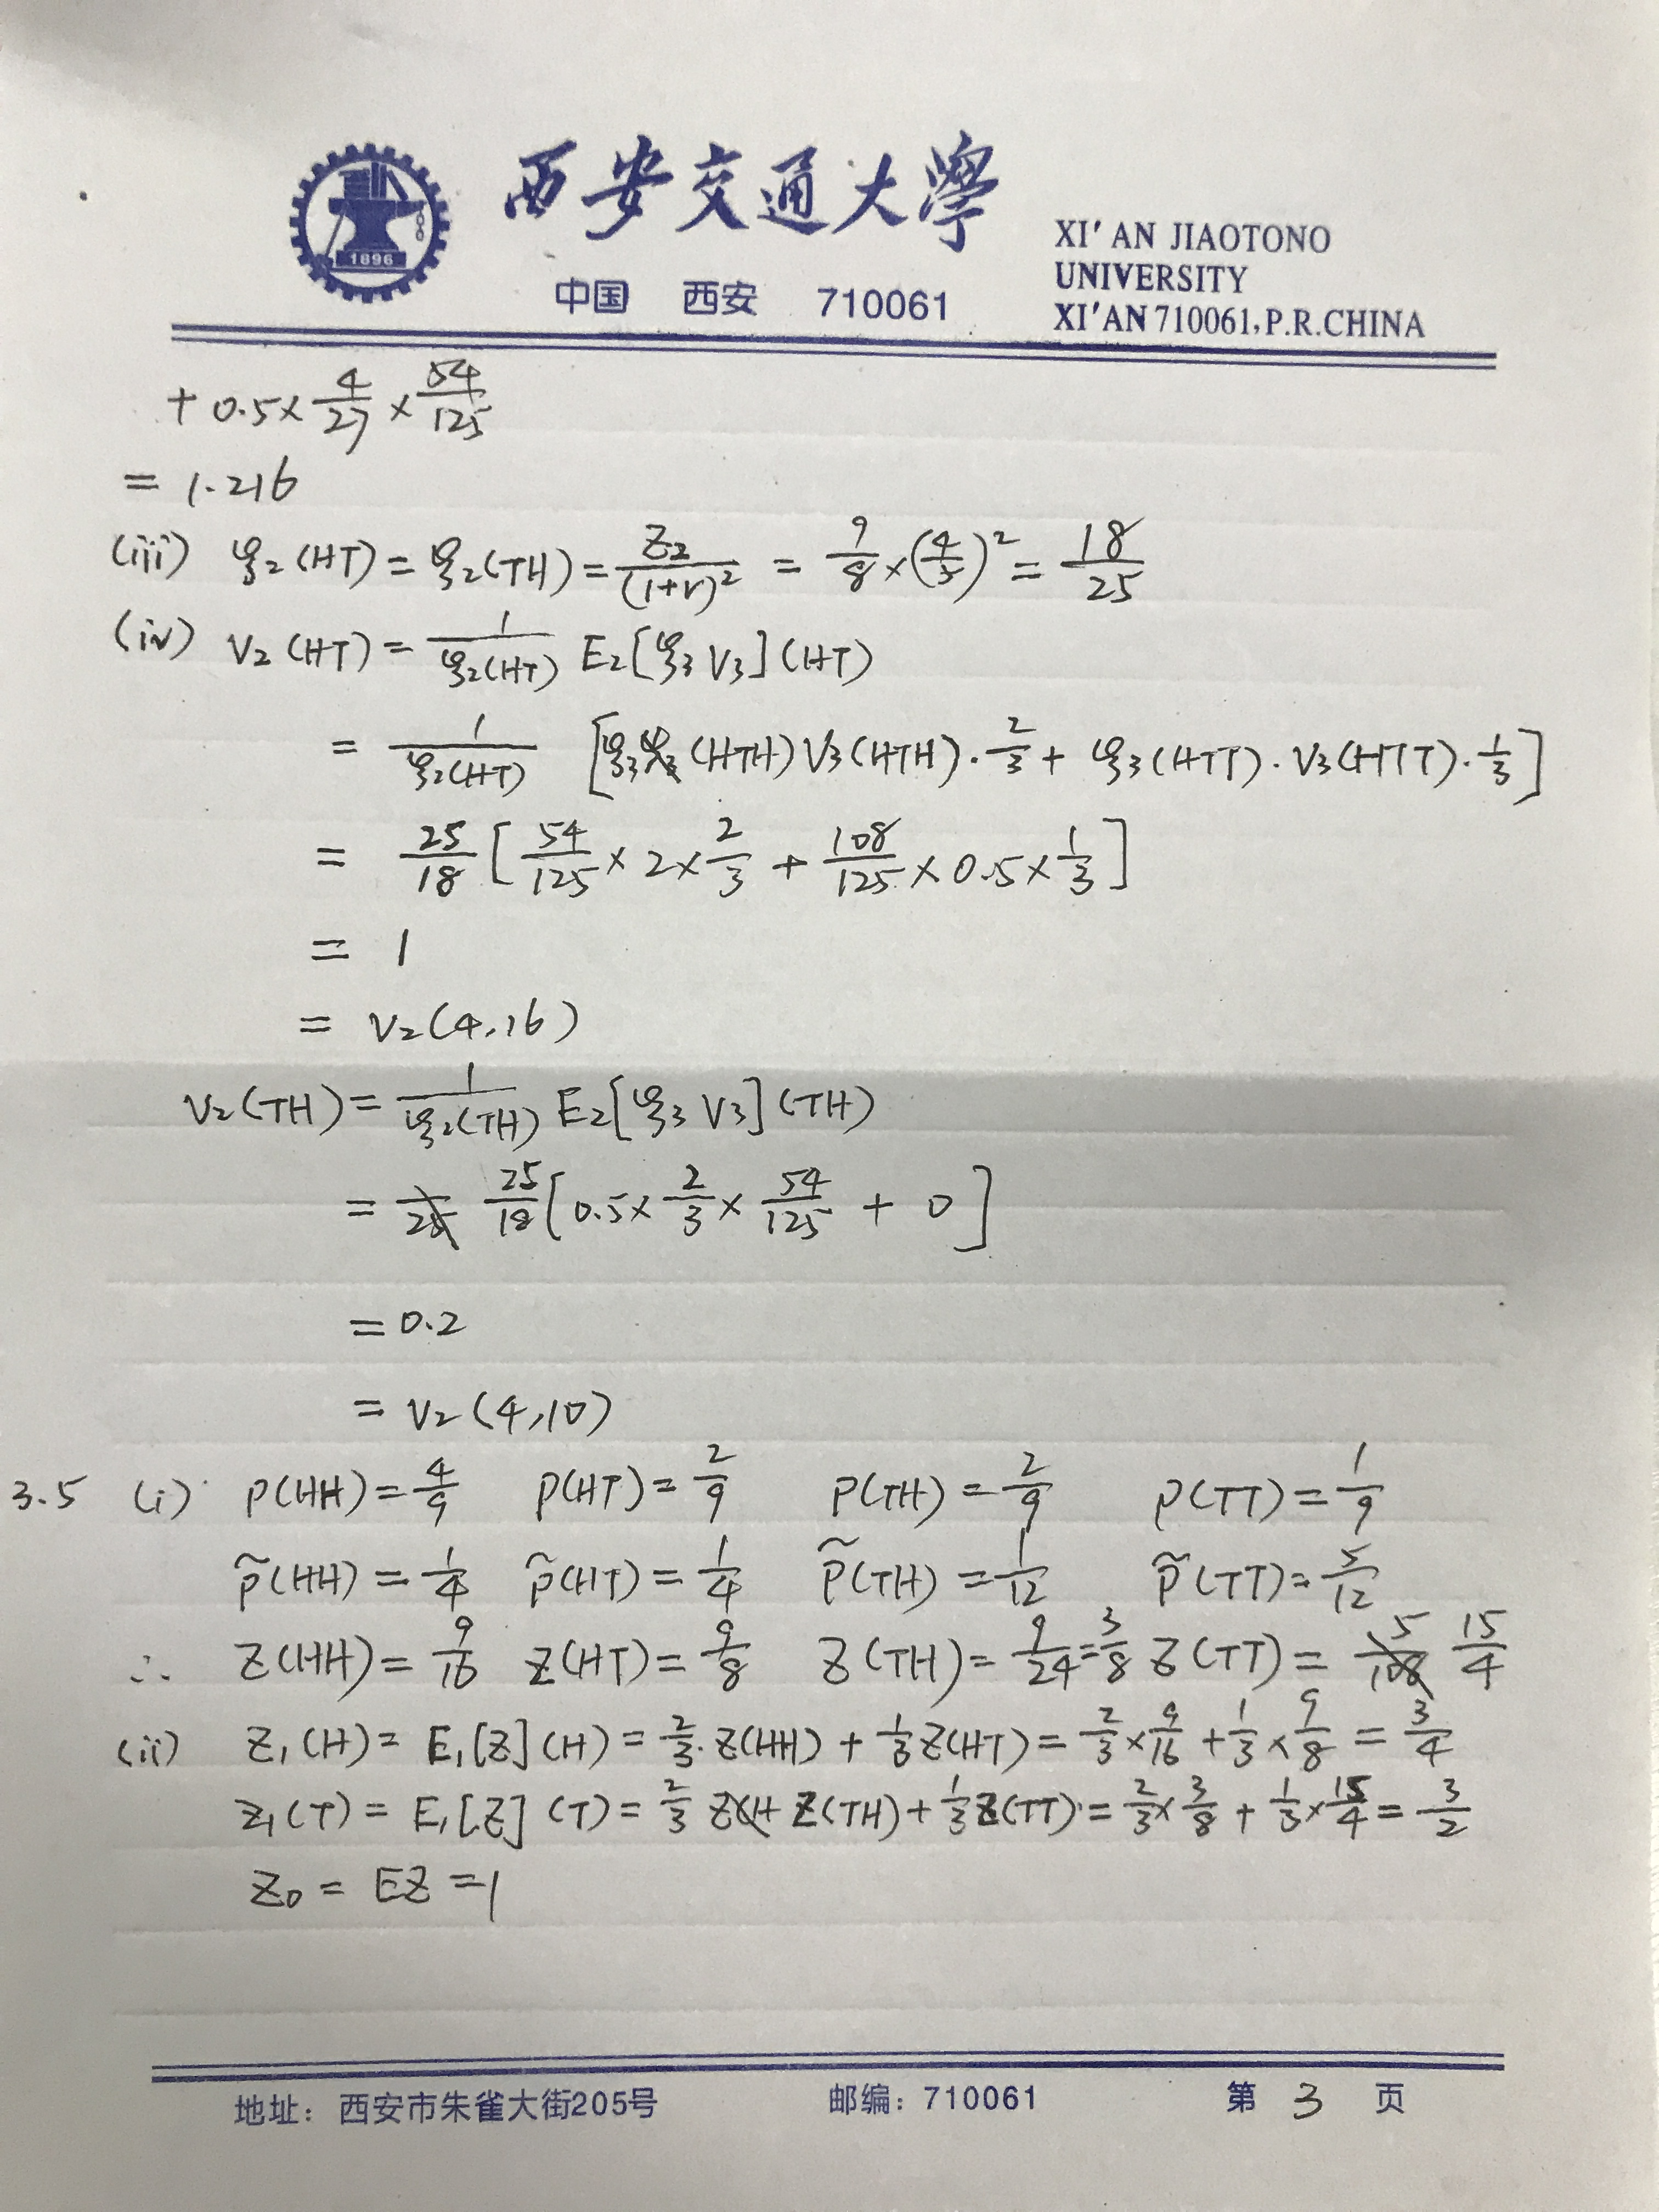 西安交通大學
中国 西安 710061
XI'AN JIAOTONO
UNIVERSITY
XI'AN 710061, P.R.CHINA
1896
+ 0.5 × 4/27 × 54/125
= 1.216
(iii) ξ₂(HT) = ξ₂(TH) = Z₂/(1+r)² = 9/8 × (4/5)² = 18/25
(iv) V₂(HT) = 1/ξ₂(HT) E₂[ξ₃ V₃](HT)
= 1/ξ₂(HT) [ξ₃(HTH) V₃(HTH) · 2/3 + ξ₃(HTT) · V₃(HTT) · 1/3]
= 25/18 [54/125 × 2 × 2/3 + 108/125 × 0.5 × 1/3]
= 1
= V₂(4,16)
V₂(TH) = 1/ξ₂(TH) E₂[ξ₃ V₃](TH)
= 25/18 [0.5 × 2/3 × 54/125 + 0]
= 0.2
= V₂(4,10)
3.5 (i) P(HH) = 4/9 P(HT) = 2/9 P(TH) = 2/9 P(TT) = 1/9
P̃(HH) = 1/4 P̃(HT) = 1/4 P̃(TH) = 1/12 P̃(TT) = 5/12
∴ Z(HH) = 9/16 Z(HT) = 9/8 Z(TH) = 9/24 = 3/8 Z(TT) = 15/4
(ii) Z₁(H) = E₁[Z](H) = 2/3 · Z(HH) + 1/3 Z(HT) = 2/3 × 9/16 + 1/3 × 9/8 = 3/4
Z₁(T) = E₁[Z](T) = 2/3 Z(TH) + 1/3 Z(TT) = 2/3 × 3/8 + 1/3 × 15/4 = 3/2
Z₀ = EZ = 1
地址：西安市朱雀大街205号 邮编：710061 第 3 页